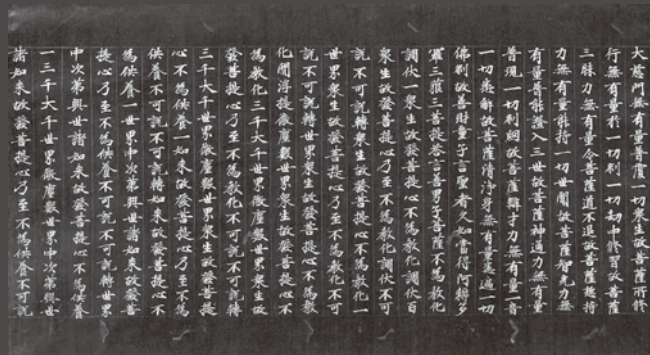 大慈門無有量普覆一切衆生故菩薩所修
行無有量於一切刹一切劫中修習故菩薩
三昧力無有量令菩薩道不退故菩薩總持
力無有量能持一切世間故菩薩智光力無
有量普能證入三世故菩薩神通力無有量
普現一切刹網故菩薩辯才力無有量一音
一切悉解故菩薩清淨身無有量悉遍一切
佛刹故善財童子言聖者久如當得阿耨多
羅三藐三菩提答言善男子菩薩不為教化
調伏一衆生故發菩提心不為教化調伏百
衆生故發菩提心乃至不為教化調伏不可
說不可說轉衆生故發菩提心不為教化一
世界衆生故發菩提心乃至不為教化不可
說不可說轉世界衆生故發菩提心不為教
化閻浮提微塵數世界衆生故發菩提心不
為教化三千大千世界微塵數世界衆生故
發菩提心乃至不為教化不可說不可說轉
三千大千世界微塵數世界衆生故發菩提
心不為供養一如來故發菩提心乃至不為
供養不可說不可說轉如來故發菩提心不
為供養一世界中次第興世諸如來故發菩
提心乃至不為供養不可說不可說轉世界
中次第興世諸如來故發菩提心不為供養
一三千大千世界微塵數世界中次第興世
諸如來故發菩提心乃至不為供養不可說